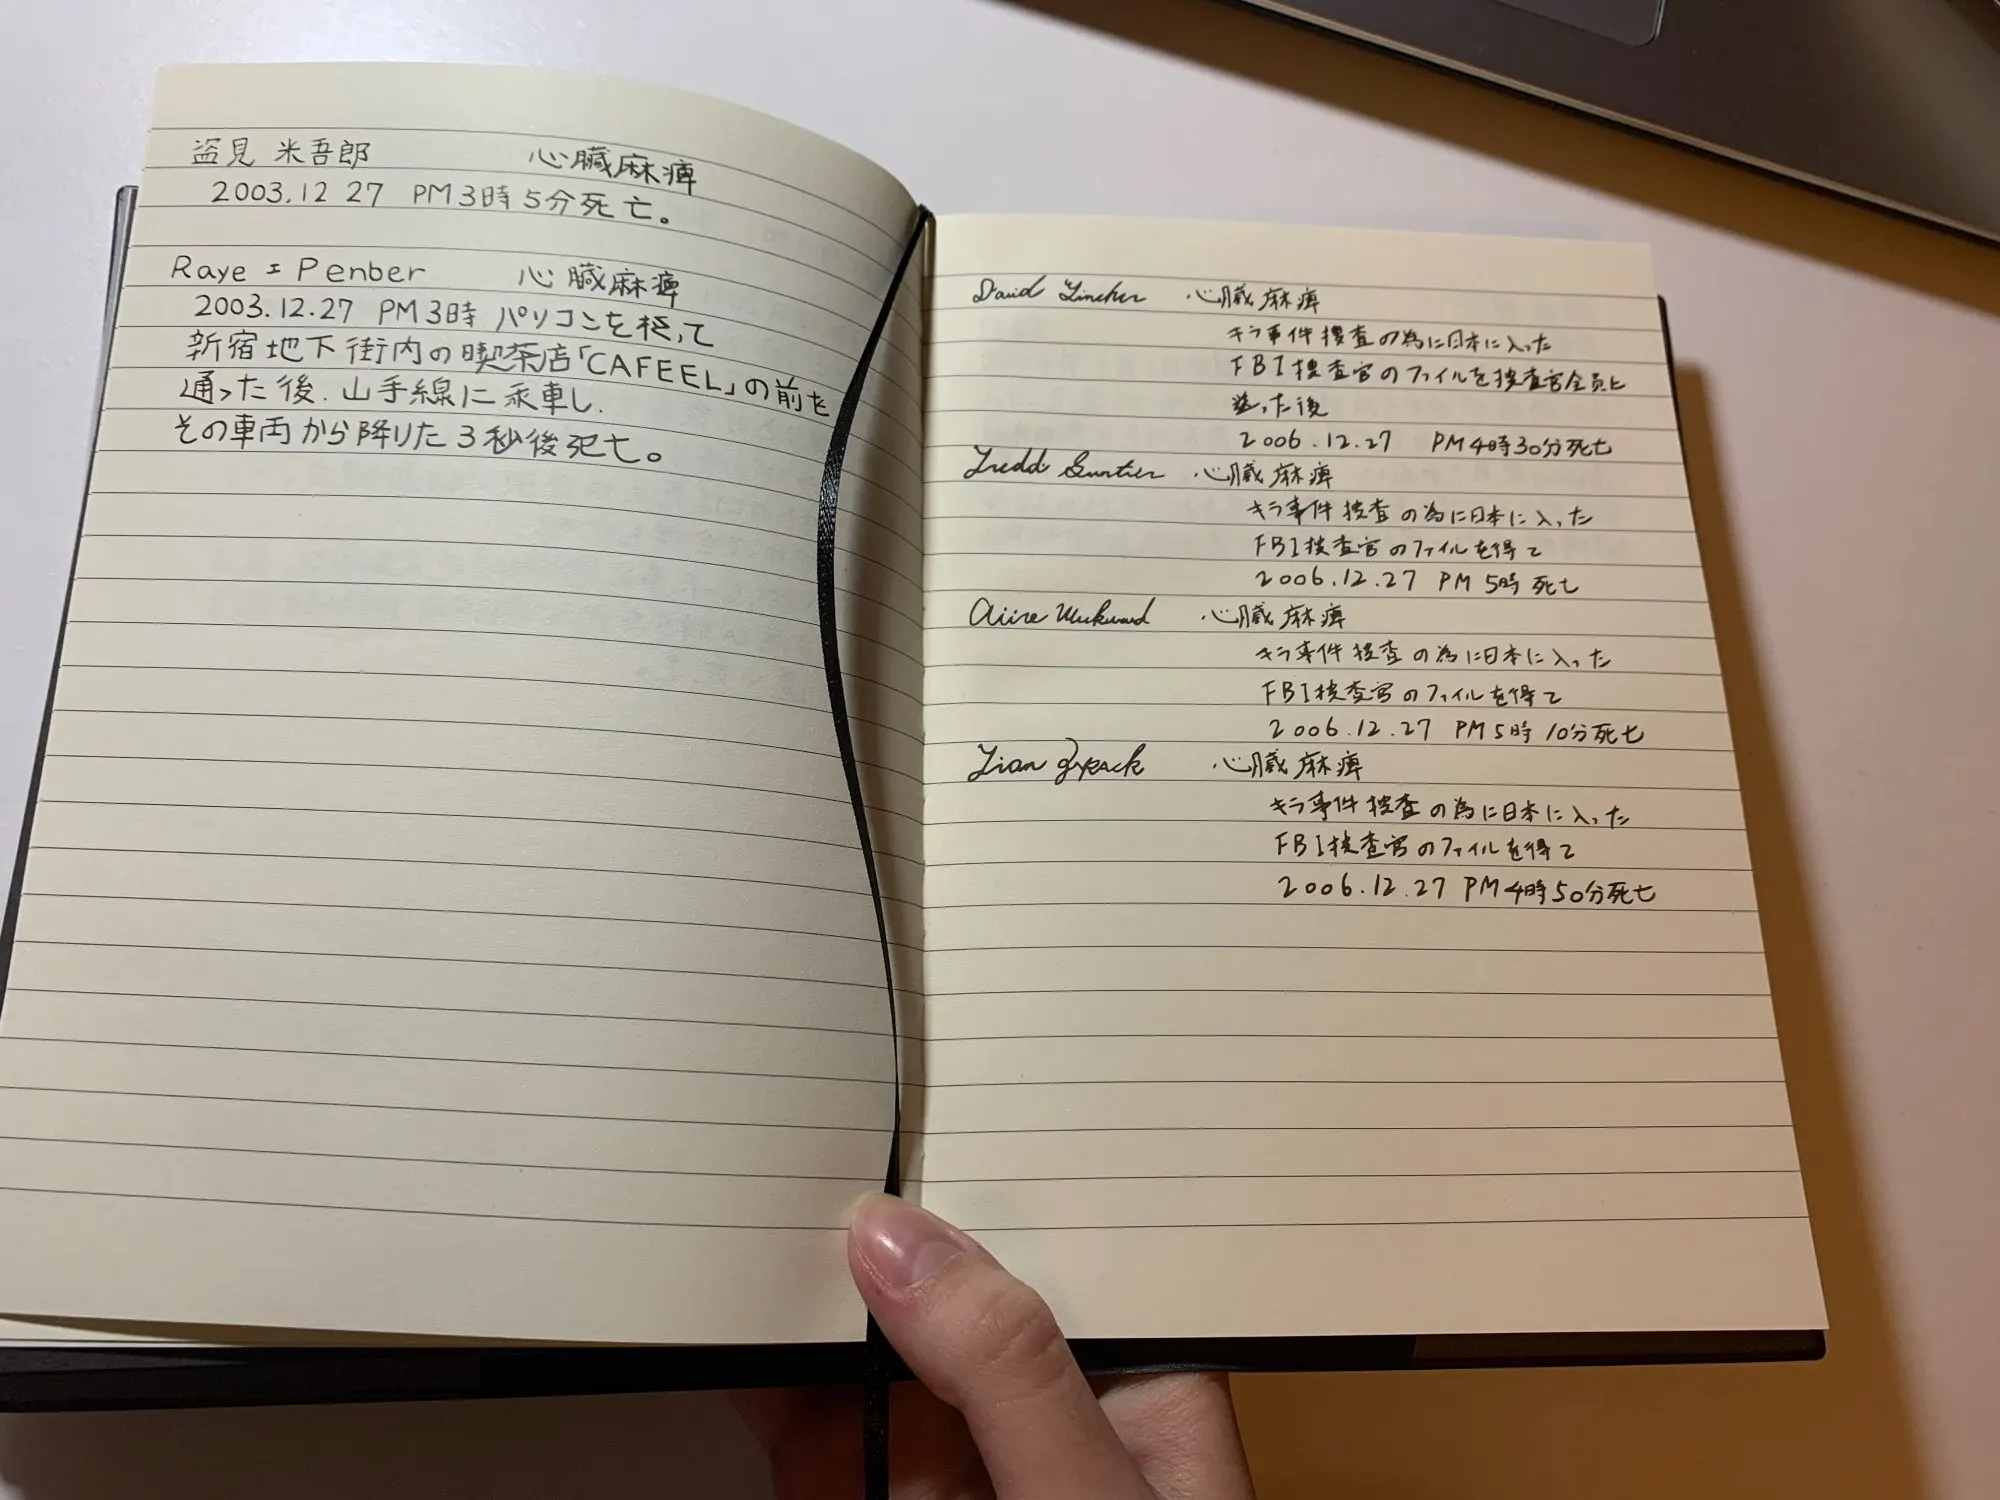 盗見 米吾郎 心臓麻痺
2003.12 27 PM3時5分死亡。
Raye = Penber 心臓麻痺
2003.12.27 PM3時 パソコンを捨って
新宿地下街内の喫茶店「CAFEEL」の前を
通った後.山手線に乗車し.
その車両から降りた3秒後死亡。
David 心臓麻痺
キラ事件捜査の為に日本に入った
FBI捜査官のファイルを捜査官全員に
送った後
2006.12.27 PM4時30分死亡
心臓麻痺
キラ事件捜査の為に日本に入った
FBI捜査官のファイルを得て
2006.12.27 PM 5時 死亡
心臓麻痺
キラ事件捜査の為に日本に入った
FBI捜査官のファイルを得て
2006.12.27 PM5時 10分死亡
Lian Zapack 心臓麻痺
キラ事件捜査の為に日本に入った
FBI捜査官のファイルを得て
2006.12.27 PM4時50分死亡